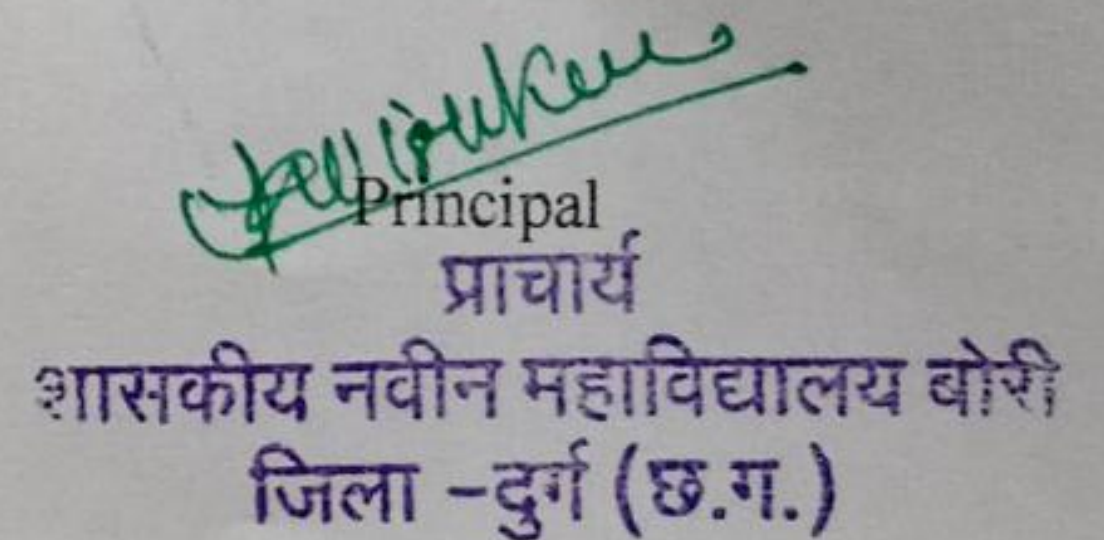 Principal
प्राचार्य
शासकीय नवीन महाविद्यालय बोरी
जिला -दुर्ग (छ.ग.)